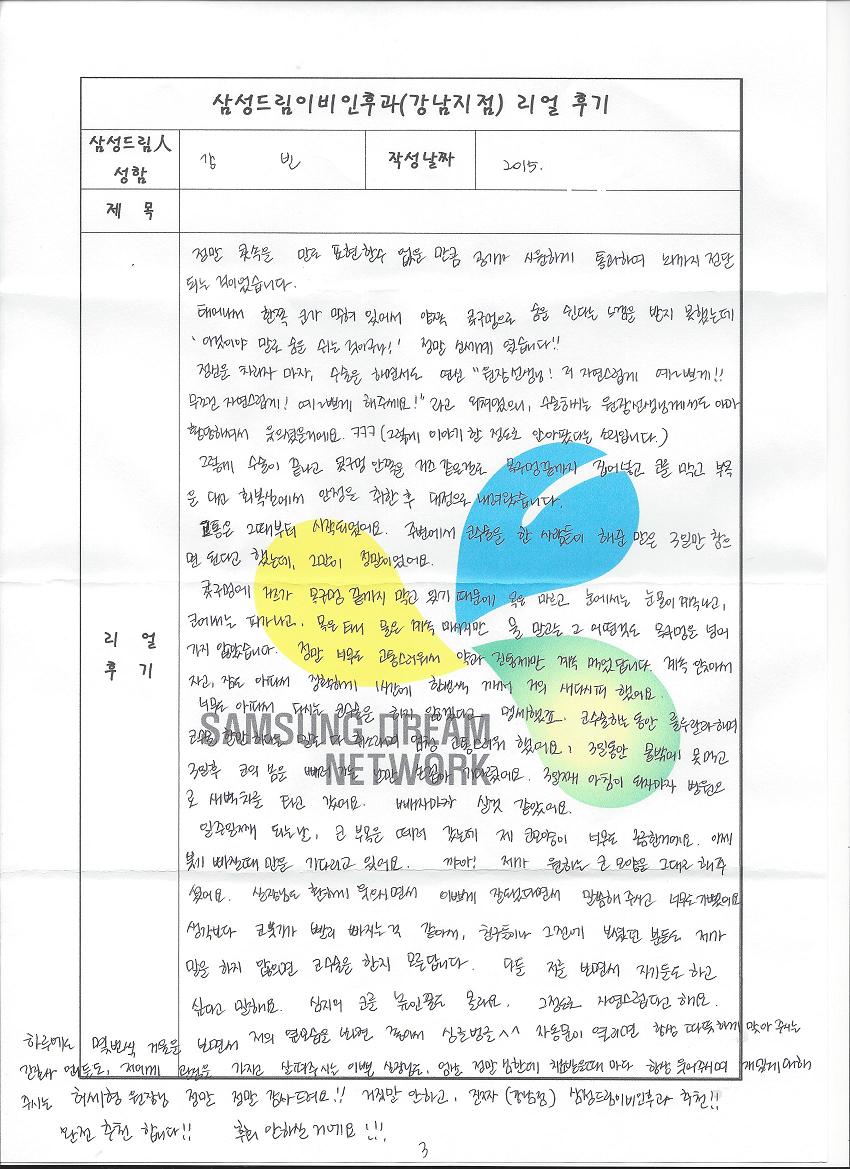 삼성드림이비인후과(강남지점) 리얼 후기
삼성드림人 성함
강 빈
작성날짜
2015.
제 목
리 얼 후 기
정말 콧속을 말로 표현할수 없을 만큼 공기가 시원하게 통과하며 뇌까지 전달
되는 것이었습니다.
태어나서 한쪽 코가 막혀 있어서 양쪽 콧구멍으로 숨을 쉰다는 느낌을 받지 못했는데
'이것이야 말로 숨을 쉬는 것이구나!' 정말 신세계 였습니다!!
정신을 차리자 마자, 수술을 하면서도 연신 "원장선생님! 저 자연스럽게 예~쁘게!!
무조건 자연스럽게! 예~쁘게 해주세요!" 라고 외쳐댔으니, 수술하시는 원장선생님께서도 아마
황당하셔서 웃으셨을거에요. ㅋㅋㅋ (그렇게 이야기 할 정도로 안아팠다는 소리입니다.)
그렇게 수술이 끝나고 콧구멍 안쪽을 거즈 같은걸로 목구멍끝까지 집어넣고 코를 막고 부목
을 대고 회복실에서 안정을 취한 후 대전으로 내려왔습니다.
고통은 그때부터 시작되었어요. 주변에서 코수술을 한 사람들이 해준 말은 3일만 참으
면 된다고 했는데, 그말이 정말이었어요.
콧구멍에 거즈가 목구멍 끝까지 막고 있기 때문에 목은 마르고 눈에서는 눈물이 계속나고,
코에서는 피가나고, 목은 타 물은 계속 마시지만 물 말고는 그 어떤것도 목구멍을 넘어
가지 않았습니다. 정말 너무도 고통스러워서 약과 진통제만 계속 먹었답니다. 계속 앉아서
자고, 잠도 아파서 정확하게 1시간에 한번씩 깨서 거의 새다시피 했어요.
너무도 아파서 다시는 코수술은 하지 않겠다고 맹세했죠. 코수술하는 동안 룰루랄라하며
코수술 할만 하다는 말도 다 취소라며 엄청 고통스러워 했어요! 3일동안 물밖에 못먹고
3일후 코의 솜을 빼러 가는 날만 손꼽아 기다렸어요. 3일째 아침이 되자마자 병원으
로 새벽차를 타고 갔어요. 빼자마자 살것 같았어요.
일주일째 되는날, 코 부목을 떼러 갔는데 제 코모양이 너무도 궁금한거에요. 어서
붓기 빠질때 만을 기다리고 있어요. 꺄아! 제가 원하는 코 모양을 그대로 해주
셨어요. 실장님도 환하게 웃으시면서 이쁘게 잘됐다면서 말씀해 주시고 너무도 기뻤어요
생각보다 코붓기가 빨리 빠지는것 같아서, 친구들이나 그전에 보셨던 분들도 제가
말을 하지 않으면 코수술을 한지 모른답니다. 다들 저를 보면서 자기들도 하고
싶다고 말해요. 심지어 코를 높인줄도 몰라요. 그정도로 자연스럽다고 해요.
하루에도 몇번씩 거울을 보면서 저의 옆모습을 보면 좋아서 싱글벙글^^ 자동문이 열리면 항상 따뜻하게 맞아 주시는
간호사 언니들도, 저에게 관심을 가지고 살펴주시는 이쁜 실장님도, 정말 항상 웃어주시며 재밌게 대해
주시는 허세형 원장님 정말 정말 감사드려요!! 거짓말 안하고, 진짜 (강남점) 삼성드림이비인후과 추천!!
완전 추천 합니다!! 후회 안하실 거에요!!!
SAMSUNG DREAM
NETWORK
3